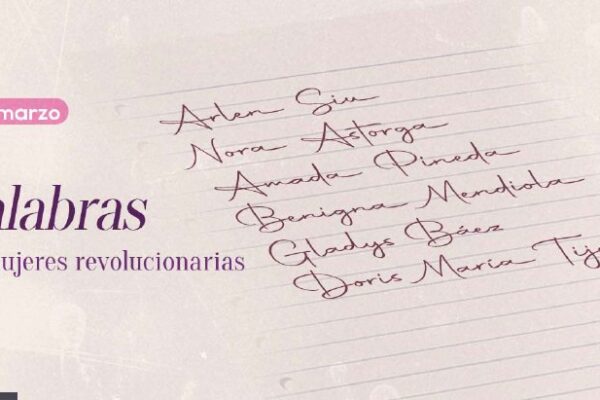 marzo
alabras
ujeres revolucionarias
Arlen Siu
Nora Astorga
Amada Pineda
Benigna Mendiola
Gladys Báez
Doris María Tij